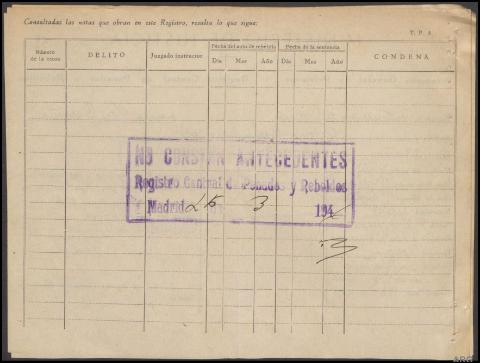 Consultadas las notas que obran en este Registro, resulta lo que sigue:
T. P. A.
Número de la causa
DELITO
Juzgado instructor
Fecha del auto de rebeldía
Día
Mes
Año
Fecha de la sentencia
Día
Mes
Año
CONDENA
NO CONSTAN ANTECEDENTES
Registro Central de Penados y Rebeldes
Madrid 3 194